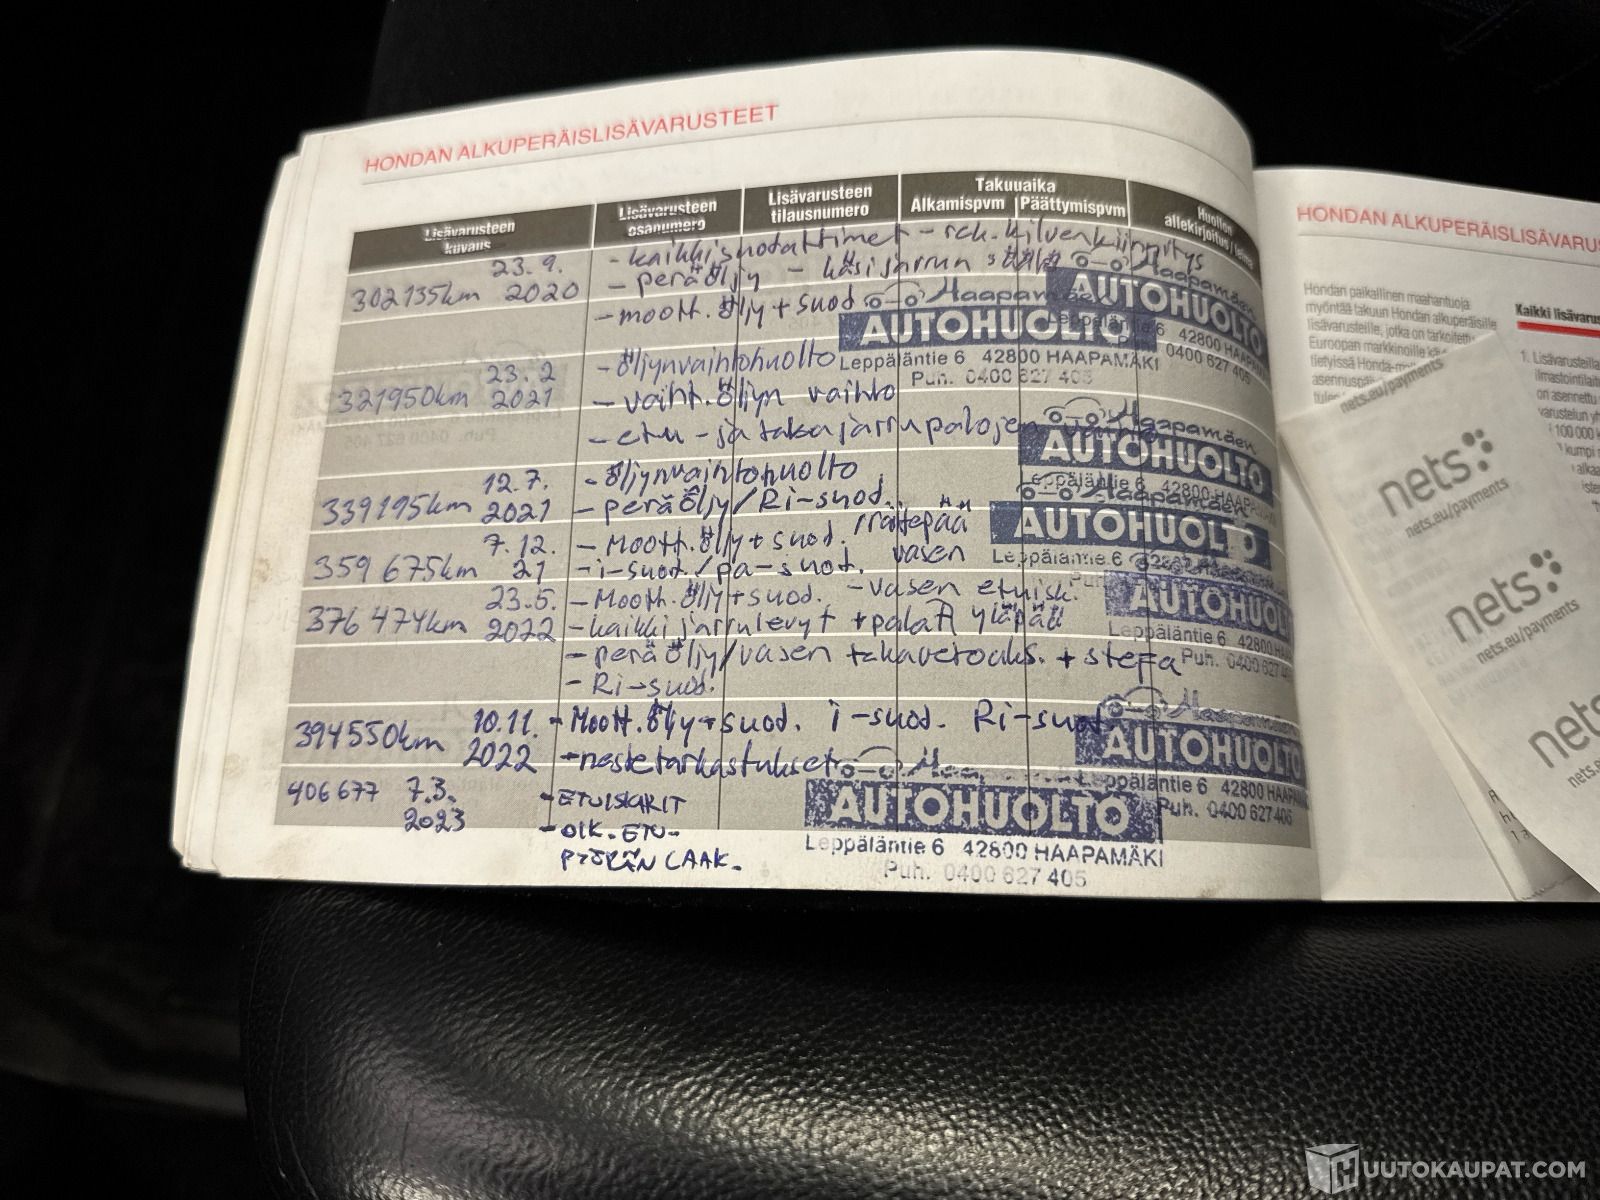 HONDAN ALKUPERÄISLISÄVARUSTEET
Lisävarusteen kuvaus
Lisävarusteen osanumero
Lisävarusteen tilausnumero
Takuuaika
Alkamispvm
Päättymispvm
Huollon allekirjoitus /
302135km 23.9. 2020
- kaikki suodattimet - rek.kilven kiinnitys
- peräöljy - käsijarrun säätö
- moott.öljy + suod
Haapamäen
AUTOHUOLTO
Leppäläntie 6 42800 HAAPAMÄKI
Puh. 0400 627 405
Haapamäen
AUTOHUOLTO
Leppäläntie 6 42800
0400 627 405
321950km 23.2 2021
- öljynvaihtohuolto
- vaiht.öljyn vaihto
- etu - ja takajarrupalojen
Haapamäen
AUTOHUOLTO
Leppäläntie 6 42800 HAAPA
339195km 12.7. 2021
- öljynvaihtohuolto
- peräöljy/Ri-suod.
Haapamäen
AUTOHUOLTO
Leppäläntie 6
359 675km 7.12. 21
- Moott.öljy + suod. /raitepää
- i-suod./pa-suod. vasen
AUTOHUOLTO
Leppäläntie 6 42800 HAAP
Puh. 0400 627 405
376 474km 23.5. 2022
- Moott.öljy + suod. - vasen etuisk.
- kaikki jarrulevyt + palat yläpää
- peräöljy/vasen takavetoaks. + stefa
- Ri-suod.
394550km 10.11. 2022
- Moott.öljy + suod. i-suod. Ri-suod
- nestetarkastukset
AUTOHUOLTO
Leppäläntie 6 42800 HAAPA
Puh. 0400 627 405
406 677 7.3. 2023
- ETUISKARIT
- OIK. ETU-
PYÖRÄN LAAK.
AUTOHUOLTO
Leppäläntie 6 42800 HAAPAMÄKI
Puh. 0400 627 405
HONDAN ALKUPERÄISLISÄVARUS
Hondan paikallinen maahantuoja
myöntää takuun Hondan alkuperäisille
lisävarusteille, jotka on tarkoitettu
Euroopan markkinoille
tietyissä
Kaikki lisävarus
1. Lisävarusteilla
ilmastointilait
on asennettu
varustelun
100 000 k
nets.eu/payments
nets
nets.eu/payments
nets
nets.eu/payments
nets
nets.e
UUTOKAUPAT.COM